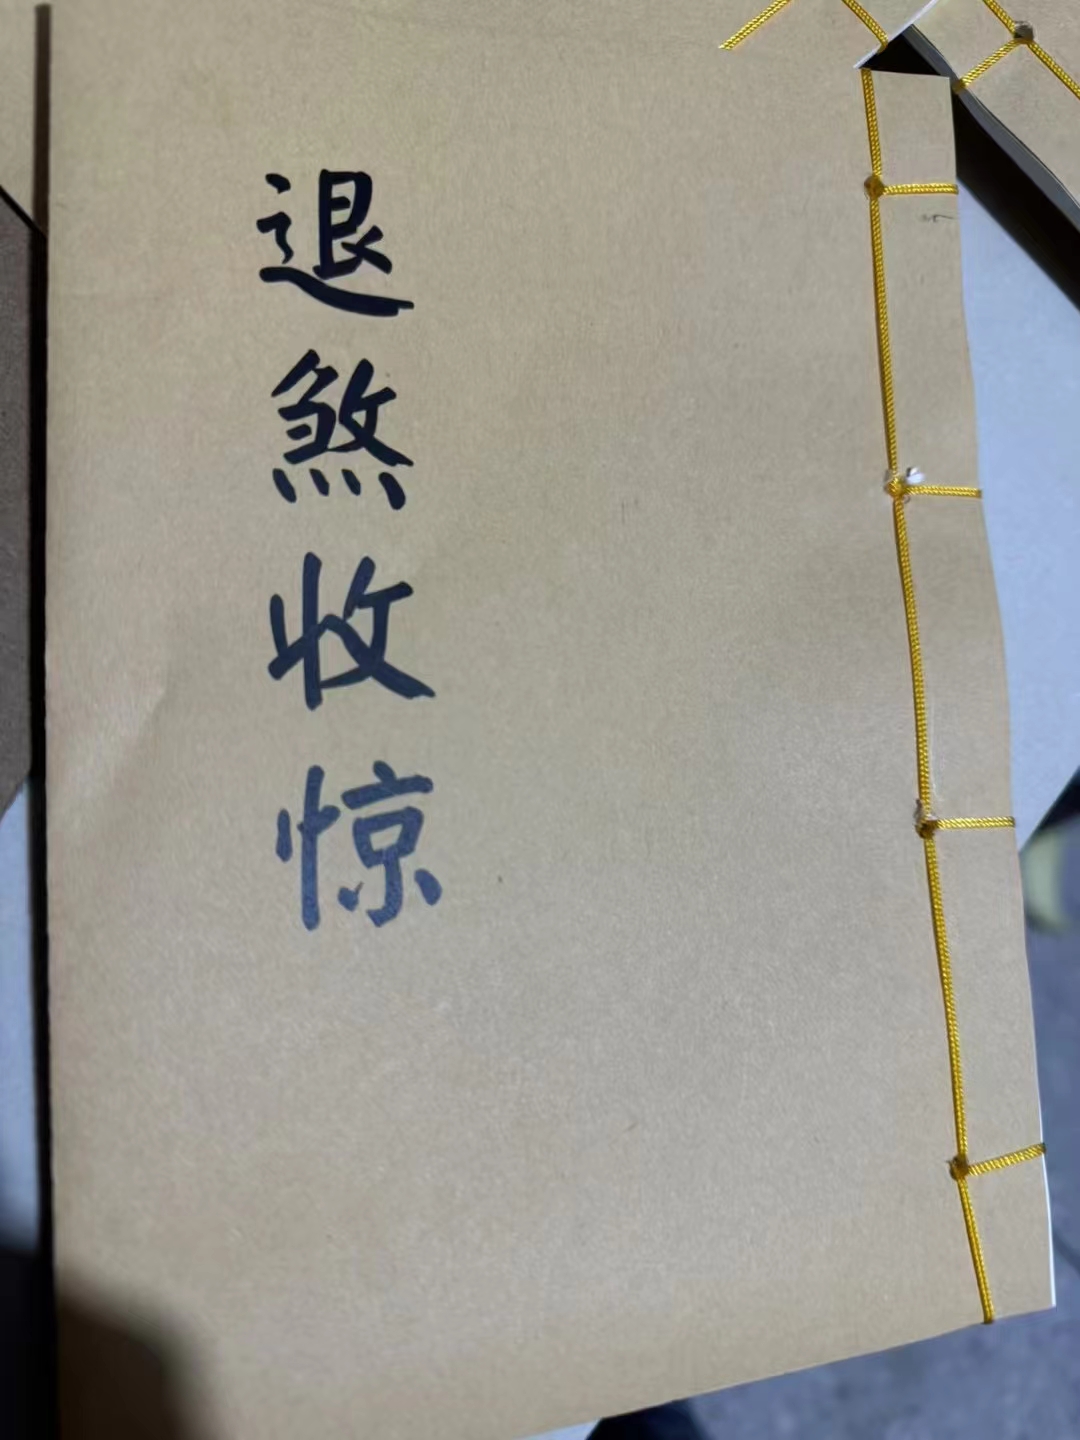 退煞收惊